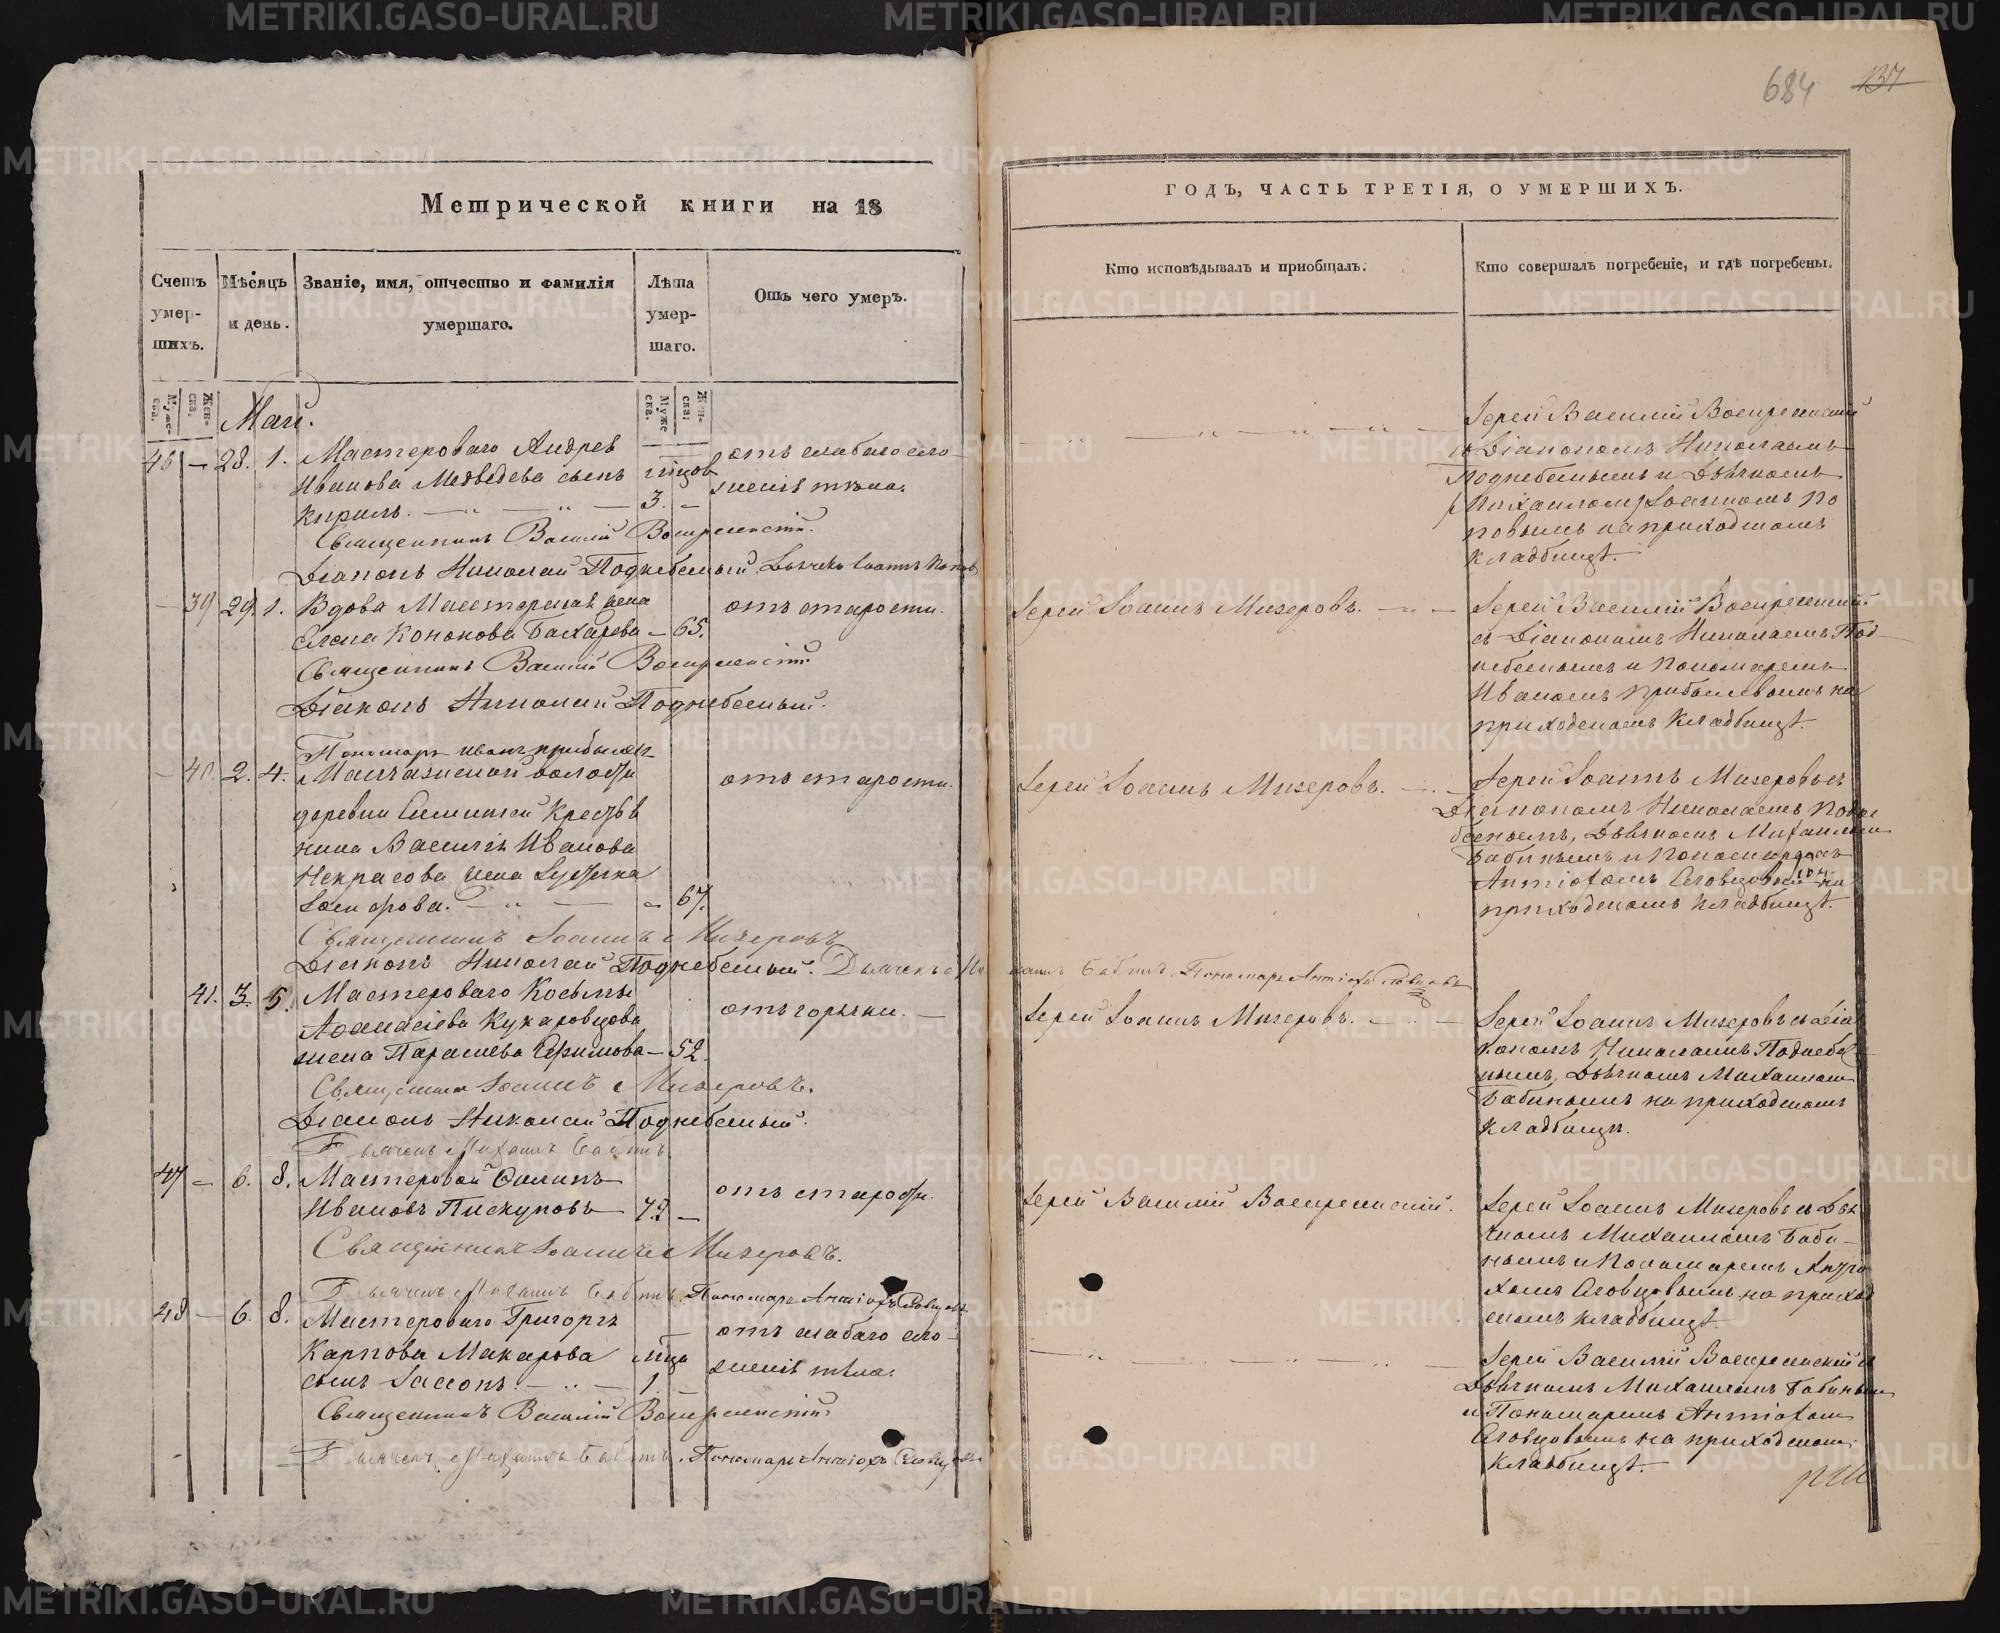 684 137
Метрической книги на 18
Счетъ умер-шихъ.
Мѣсяцъ и день.
Званіе, имя, отчество и фамилія умершаго.
Лѣта умер-шаго.
Отъ чего умеръ.
Муже-ска. Жен-ска.
Муже ска. Жен-ска:
Май.
46 — 28. 1. Мастероваго Андрея
Иванова Медведева сынъ
Кирилъ. — „ — „ — 3. —
отъ слабаго сло-
женія тѣла.
Священникъ Василій Воскресенскій.
Діаконъ Николай Поднебесный. Дьячекъ Іоаннъ Поповъ
— 39 29. 1. Вдова Мастерская жена
Елена Кононова Бахарева — 65.
отъ старости.
Священникъ Василій Воскресенскій
Діаконъ Николай Поднебесный.
Пономарь Иванъ Прибылевъ
— 40. 2. 4. волости
деревни Крестья
нина Василія Иванова
Некрасова жена
67.
отъ старости.
Священникъ Іоаннъ Мизеровъ
Діаконъ Николай Поднебесный. Дьячекъ Ми
хаилъ Бабинъ. Пономарь Антіохъ Словцовъ
41. 3. 5. Мастероваго Косьмы
Афанасіева Кукаровцова
жена Параскева Ефимова — 52.
отъ горячки. —
Священникъ Іоаннъ Мизеровъ.
Діаконъ Николай Поднебесный.
Дьячекъ Михаилъ Бабинъ.
47 — 6. 8. Мастеровой Филипъ
Ивановъ Пискуновъ 72 —
отъ старости.
Священникъ Іоаннъ Мизеровъ.
Дьячекъ Михаилъ Бабинъ. Пономарь Антіохъ Словцовъ
48 — 6. 8. Мастероваго Григорія
Карпова Макарова
сынъ Іассонъ. — „ — 1.
отъ слабаго сло-
женія тѣла.
Священникъ Василій Воскресенскій
Дьячекъ Михаилъ Бабинъ. Пономарь Антіохъ Словцовъ
ГОДЪ, ЧАСТЬ ТРЕТІЯ, О УМЕРШИХЪ.
Кто исповѣдывалъ и пріобщалъ.
Кто совершалъ погребеніе, и гдѣ погребены.
Іерей Василій Воскресенскій
съ Діакономъ Николаемъ
Поднебеснымъ и Дьячкомъ
Іоанномъ По
повымъ на приходскомъ
кладбищѣ.
Іерей Іоаннъ Мизеровъ. — „ —
Іерей Василій Воскресенскій
съ Діакономъ Николаемъ Под-
небеснымъ и Пономаремъ
Иваномъ Прибылевымъ на
приходскомъ кладбищѣ.
Іерей Іоаннъ Мизеровъ.
Іерей Іоаннъ Мизеровъ съ
Діакономъ Николаемъ Подне
беснымъ, Дьячкомъ Михаиломъ
Бабинымъ и Пономаремъ
Антіохомъ Словцовымъ на
приходскомъ кладбищѣ.
Іерей Іоаннъ Мизеровъ.
Іерей Іоаннъ Мизеровъ съ Діа
кономъ Николаемъ Поднебес
нымъ, Дьячкомъ Михаиломъ
Бабинымъ на приходскомъ
кладбищѣ.
Іерей Василій Воскресенскій.
Іерей Іоаннъ Мизеровъ съ Дья
чкомъ Михаиломъ Баби-
нымъ и Пономаремъ Антіо
хомъ Словцовымъ на приход
скомъ кладбищѣ.
Іерей Василій Воскресенскій съ
Дьячкомъ Михаиломъ Бабинымъ
и Пономаремъ Антіохомъ
Словцовымъ на приходскомъ
кладбищѣ.
METRIKI.GASO-URAL.RU